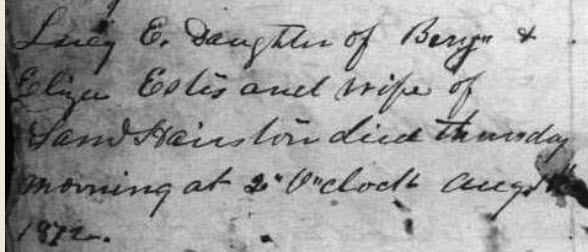 Lucy E. Daughter of Benjn &
Eliza Estis and wife of
Saml Hairston died thursday
morning at 2" O"clock Aug
1872.